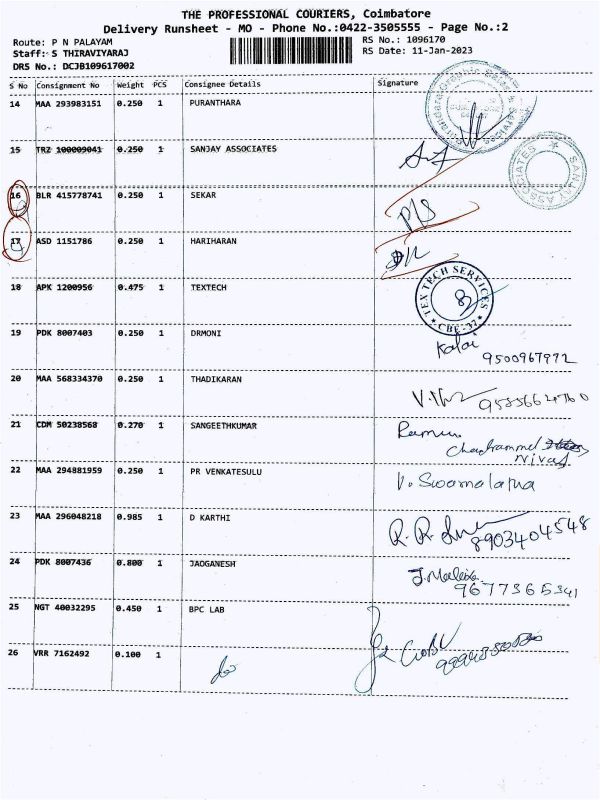 THE PROFESSIONAL COURIERS, Coimbatore
Delivery Runsheet - MO - Phone No.:0422-3505555 - Page No.:2
Route: P N PALAYAM
Staff: S THIRAVIYARAJ
DRS No.: DCJB109617002
RS No.: 1096170
RS Date: 11-Jan-2023
S No Consignment No Weight PCS Consignee Details Signature
14 MAA 293983151 0.250 1 PURANTHARA
15 TRZ 100009041 0.250 1 SANJAY ASSOCIATES
SANJAY ASSOCIATES
16 BLR 415778741 0.250 1 SEKAR
P/S
17 ASD 1151786 0.250 1 HARIHARAN
18 APK 1200956 0.475 1 TEXTECH
TEX TECH SERVICES
CBE-37
19 PDK 8007403 0.250 1 DRMONI
Kalai
9500967972
20 MAA 568334370 0.250 1 THADIKARAN
21 CDM 50238568 0.270 1 SANGEETHKUMAR
22 MAA 294881959 0.250 1 PR VENKATESULU
V. Swarnalatha
23 MAA 296048218 0.985 1 D KARTHI
8903404548
24 PDK 8007436 0.800 1 JAOGANESH
9677365341
25 NGT 40032295 0.450 1 BPC LAB
26 VRR 7162492 0.100 1